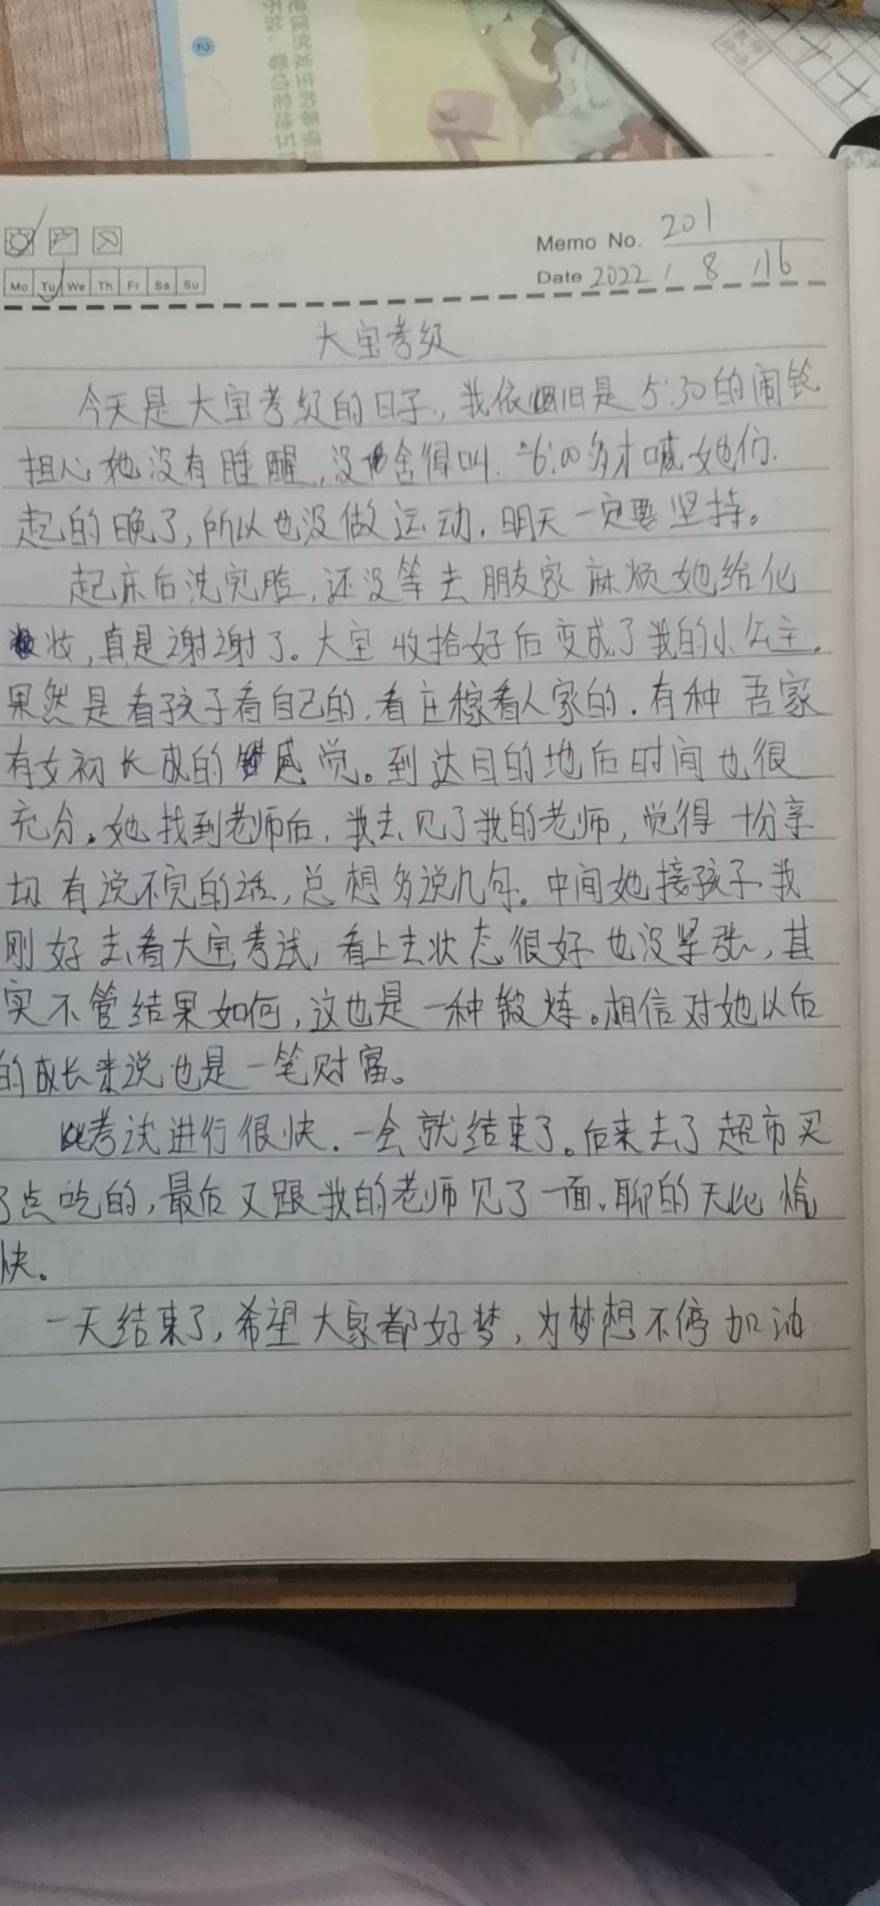 2
Memo No. 201
Mo Tu We Th Fr Sa Su
Date 2022 / 8 / 16
大宝考级
今天是大宝考级的日子,我依旧是5:30的闹铃
担心她没有睡醒,没舍得叫.6:00多才喊她们.
起的晚了,所以也没做运动.明天一定要坚持。
起床后洗完脸,还没等去朋友家麻烦她给化
妆,真是谢谢了。大宝收拾好后变成了我的小公主.
果然是看孩子看自己的.看庄稼看人家的.有种吾家
有女初长成的感觉。到达目的地后时间也很
充分。她找到老师后.我去见了我的老师,觉得十份亲
切有说不完的话,总想多说几句。中间她接孩子我
刚好去看大宝考试,看上去状态很好也没紧张,其
实不管结果如何,这也是一种锻炼。相信对她以后
的成长来说也是一笔财富。
考试进行很快.一会就结束了。后来去了超市买
了点吃的,最后又跟我的老师见了一面.聊的天也愉
快。
一天结束了,希望大家都好梦,为梦想不停加油